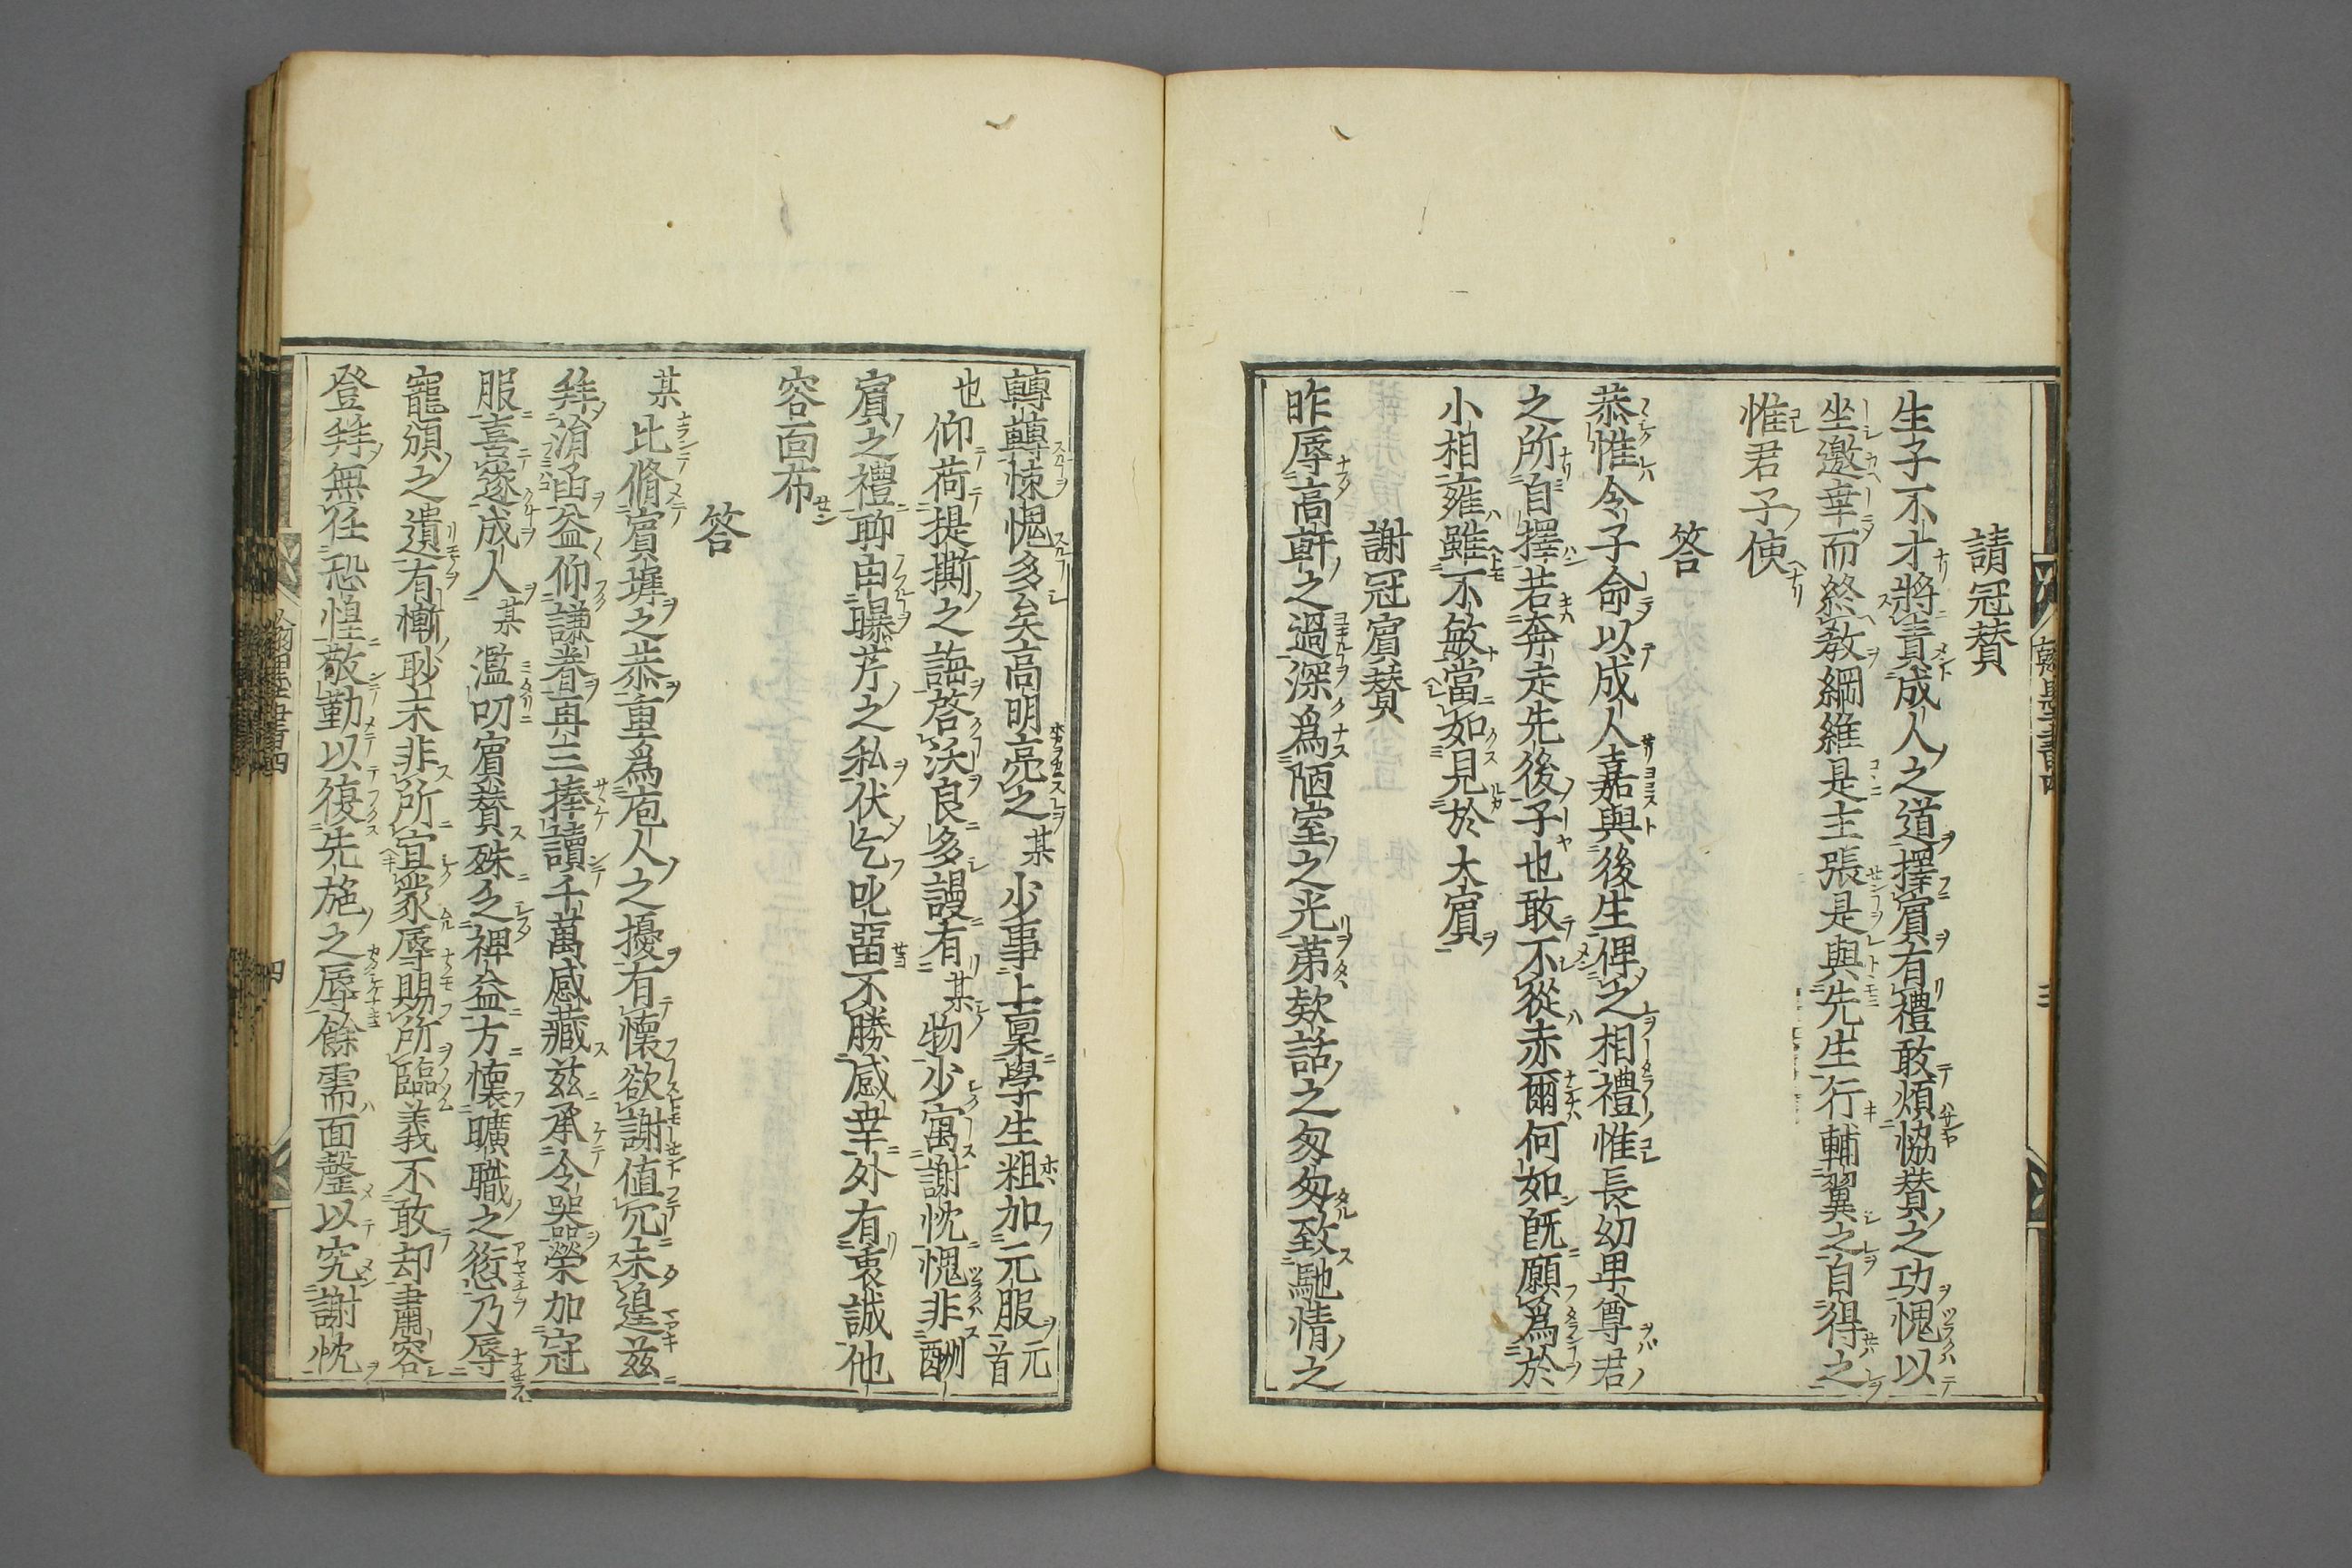 請冠賛
生子不才將責成人之道擇賔有禮敢煩恊賛之功愧以
坐邀幸而終教綱維是主張是與先生行輔翼之自得之
惟君子使
答
恭惟令子命以成人嘉與後生俾之相禮惟長幼卑尊君
之所自擇若奔走先後子也敢不從赤爾何如旣願爲於
小相雍雖不敏當如見於大賔
謝冠賔賛
昨辱高軒之過深爲陋室之光苐欵話之匆匆致馳情之
轉轉悚愧多矣高明亮之某少事上稟學生粗加元服元首
也仰荷提撕之誨啓沃良多謾有某物少寓謝忱愧非酬
賔之禮聊申曝芹之私伏乞叱畱不勝感幸外有衷誠他
容面布
答
某比脩賔墀之恭重爲庖人之擾有懐欲謝值冗未遑茲
拜湌函益仰謙眷再三捧讀千萬感藏茲承令器榮加冠
服喜遂成人某濫叨賔賛殊乏裨益方懐曠職之愆乃辱
寵頒之遺有慚耿末非所宜蒙辱賜所臨義不敢却肅容
登拜無任恐惶敬勤以復先施之辱餘需面罄以究謝忱